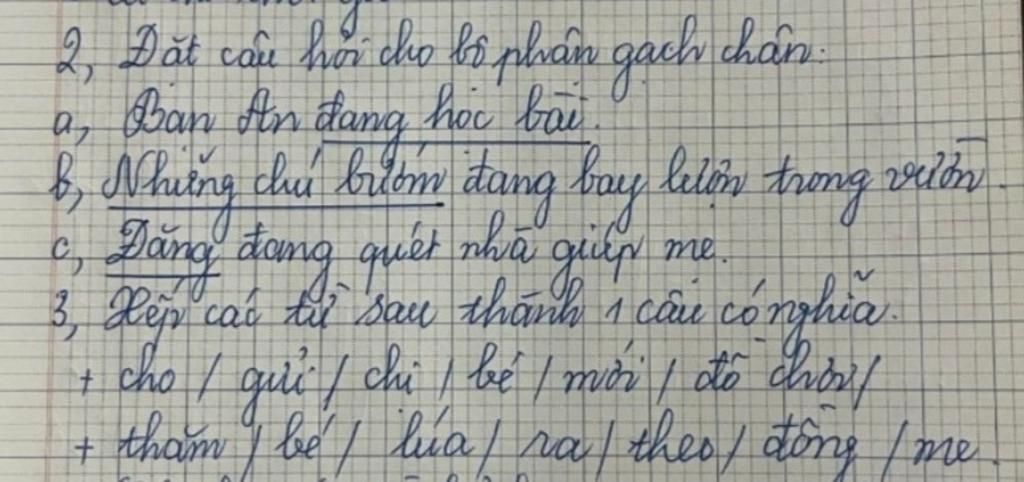 2, Đặt câu hỏi cho bộ phận gạch chân:
a, Bạn An đang học bài.
b, Những chú bướm đang bay lượn trong vườn.
c, Đăng đang quét nhà giúp mẹ.
3, Xếp các từ sau thành 1 câu có nghĩa.
+ cho / gửi / chị / bé / mới / đồ chơi /
+ thăm / bé / lúa / ra / theo / đồng / mẹ.